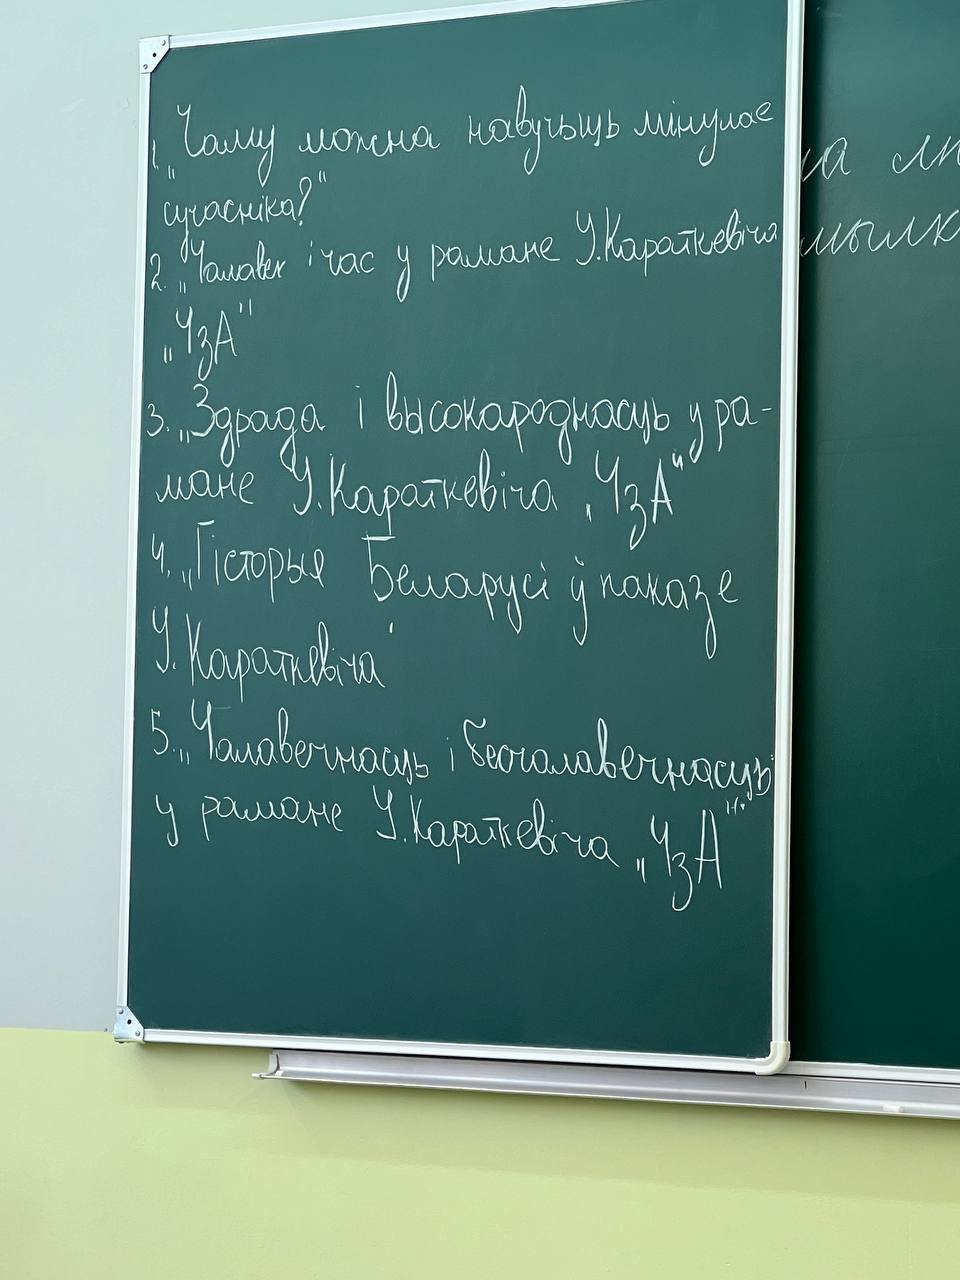 1. „Чаму можна навучыць мінулае
сучасніка?"
2. „Чалавек і час у рамане У.Караткевіча
„ЧзА"
3. „Здрада і высокароднасць у ра-
мане У.Караткевіча „ЧзА"
4. „Гісторыя Беларусі ў паказе
У.Караткевіча
5. „Чалавечнасць і бесчалавечнасць
у рамане У.Караткевіча „ЧзА".